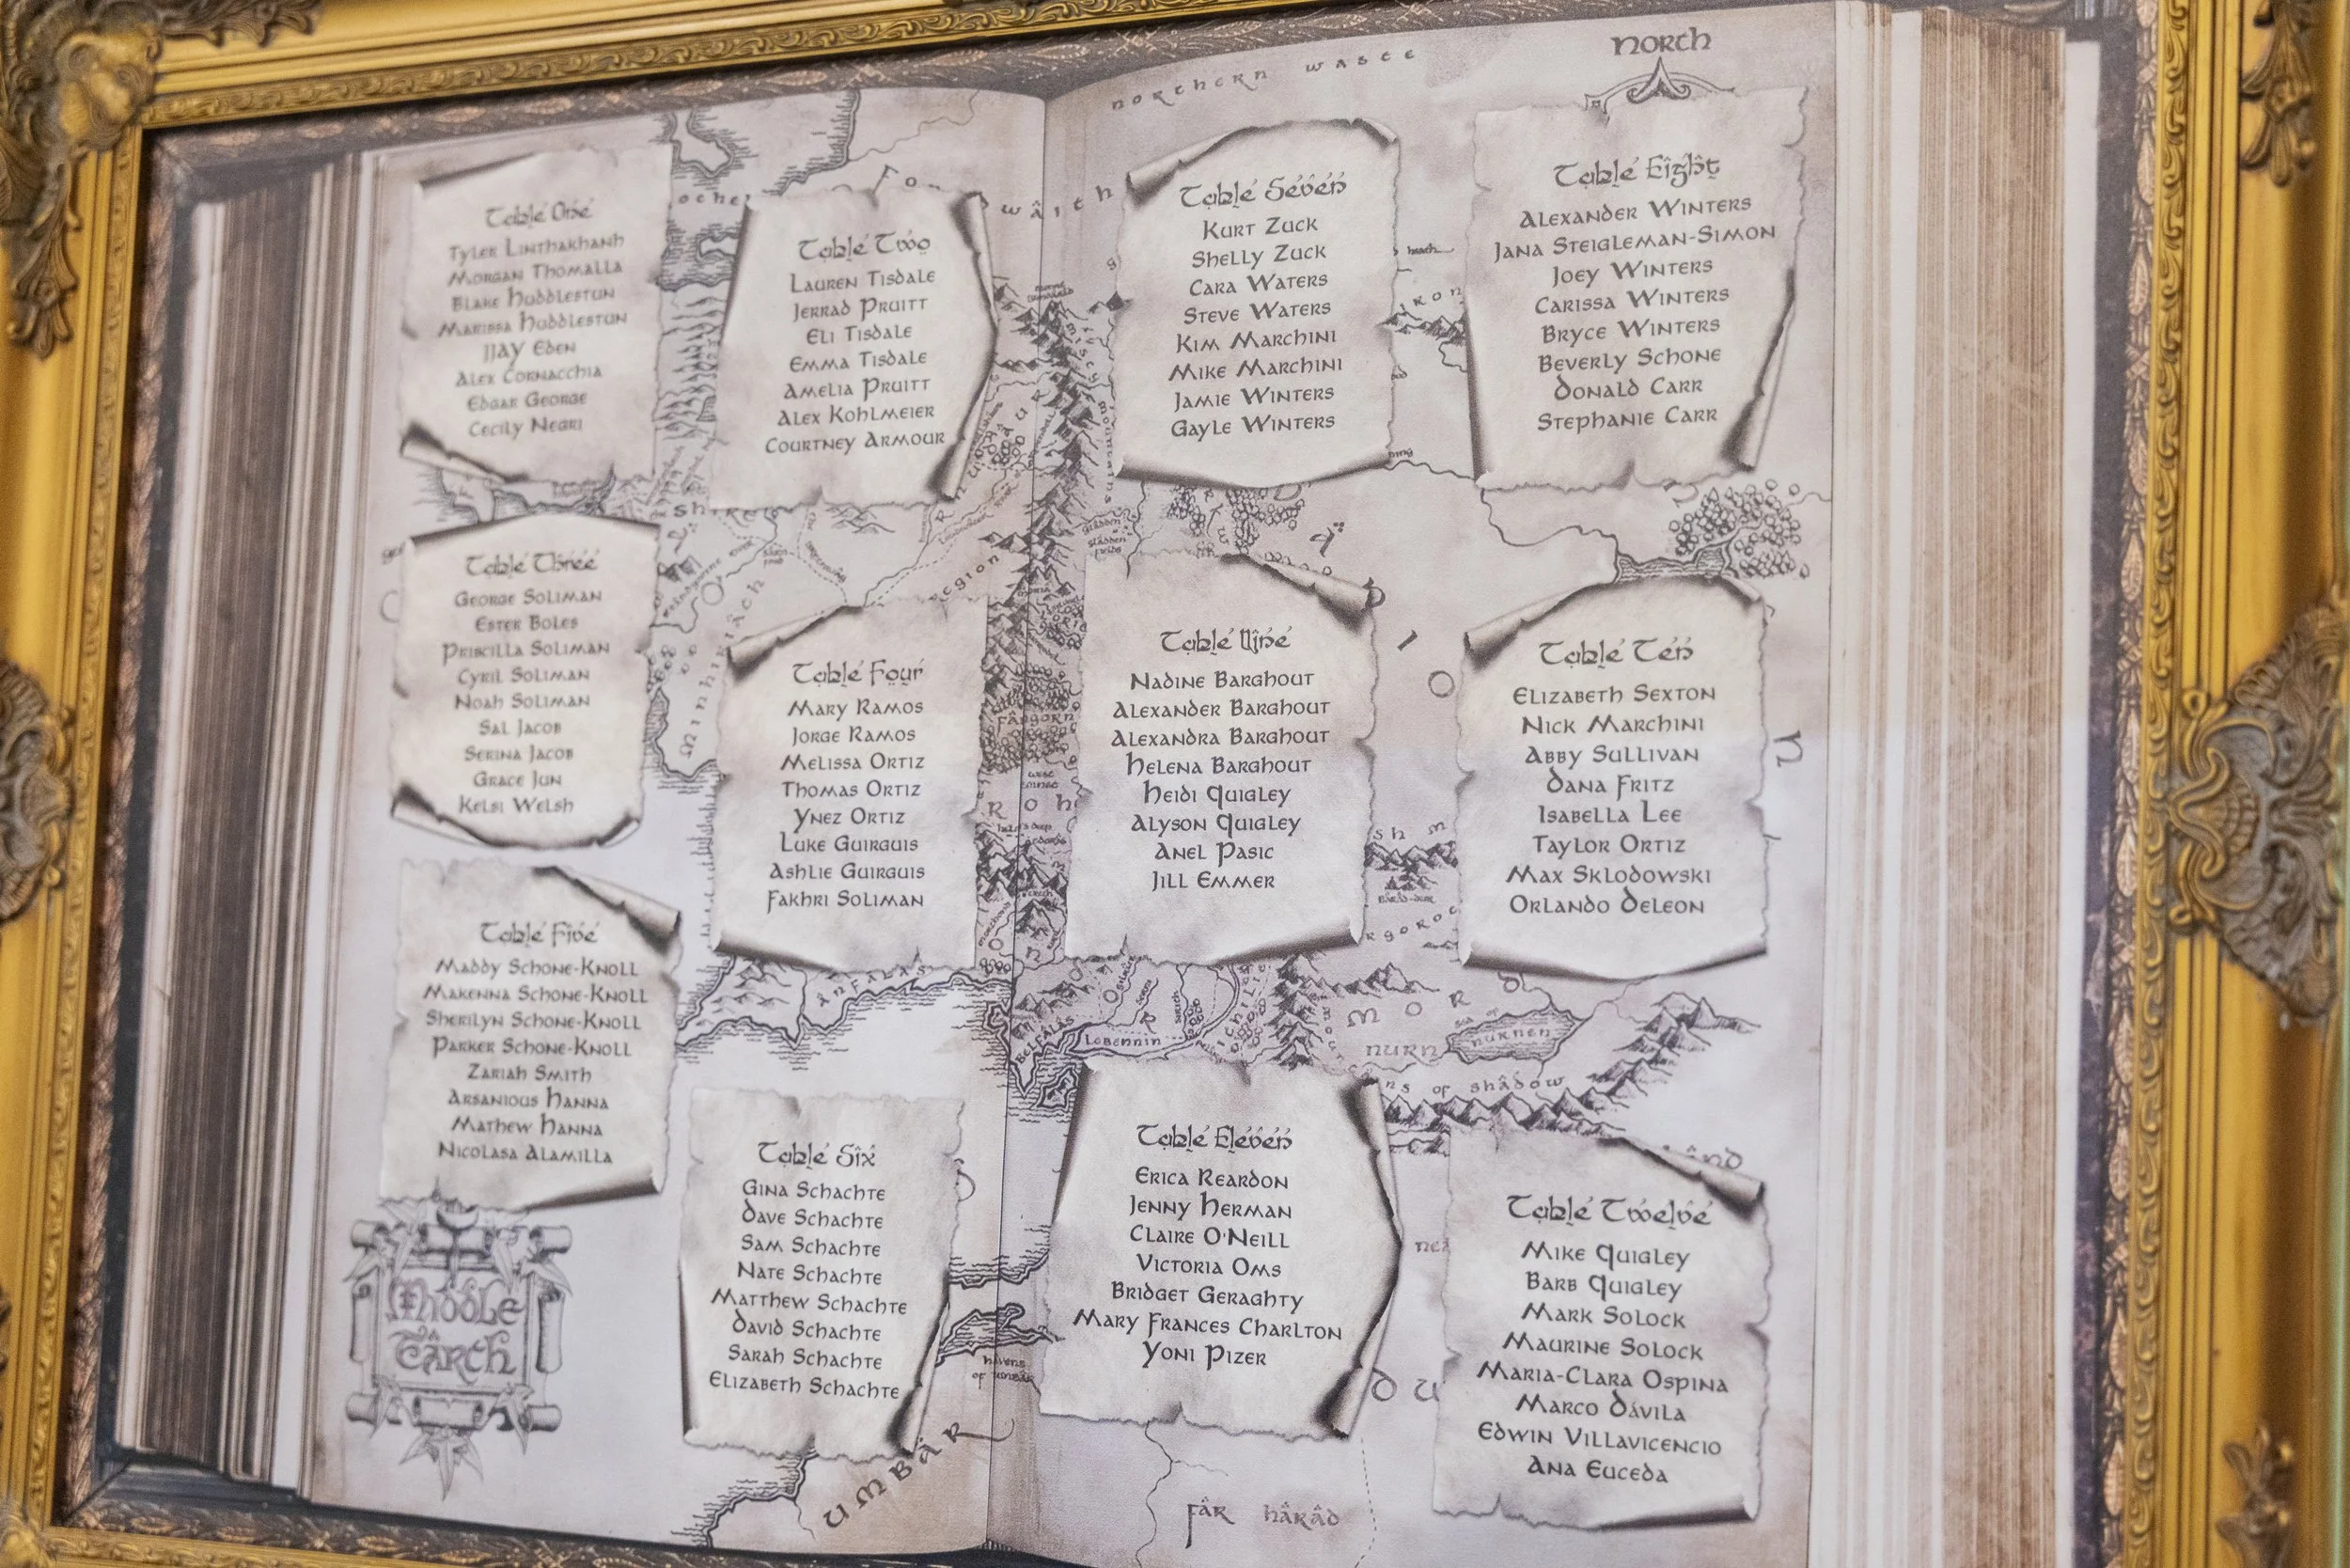 Northern Waste
North
Table One
Tyler Linthakhanh
Morgan Thomalla
Blake Huddlestun
Marissa Huddlestun
JJay Eden
Alex Cornacchia
Edgar George
Cecily Negri
Table Two
Lauren Tisdale
Jerrad Pruitt
Eli Tisdale
Emma Tisdale
Amelia Pruitt
Alex Kohlmeier
Courtney Armour
Table Three
George Soliman
Ester Boles
Priscilla Soliman
Cyril Soliman
Noah Soliman
Sal Jacob
Serina Jacob
Grace Jun
Kelsi Welsh
Table Four
Mary Ramos
Jorge Ramos
Melissa Ortiz
Thomas Ortiz
Ynez Ortiz
Luke Guirguis
Ashlie Guirguis
Fakhri Soliman
Table Five
Maddy Schone-Knoll
Makenna Schone-Knoll
Sherilyn Schone-Knoll
Parker Schone-Knoll
Zariah Smith
Arsanious Hanna
Mathew Hanna
Nicolasa Alamilla
Table Six
Gina Schachte
Dave Schachte
Sam Schachte
Nate Schachte
Matthew Schachte
David Schachte
Sarah Schachte
Elizabeth Schachte
Middle
Earth
Table Seven
Kurt Zuck
Shelly Zuck
Cara Waters
Steve Waters
Kim Marchini
Mike Marchini
Jamie Winters
Gayle Winters
Table Eight
Alexander Winters
Jana Steigleman-Simon
Joey Winters
Carissa Winters
Bryce Winters
Beverly Schone
Donald Carr
Stephanie Carr
Table Nine
Nadine Barghout
Alexander Barghout
Alexandra Barghout
Helena Barghout
Heidi Quigley
Alyson Quigley
Anel Pasic
Jill Emmer
Table Ten
Elizabeth Sexton
Nick Marchini
Abby Sullivan
Dana Fritz
Isabella Lee
Taylor Ortiz
Max Sklodowski
Orlando Deleon
Table Eleven
Erica Reardon
Jenny Herman
Claire O'Neill
Victoria Oms
Bridget Geraghty
Mary Frances Charlton
Yoni Pizer
Table Twelve
Mike Quigley
Barb Quigley
Mark Solock
Maurine Solock
Maria-Clara Ospina
Marco Dávila
Edwin Villavicencio
Ana Euceda
Minhiriath
Region
Fangorn
Anfalas
Belfalas
Lebennin
Nurn
Sea of
Nurnen
of Shadow
Havens
of Umbar
Umbar
Far Harad